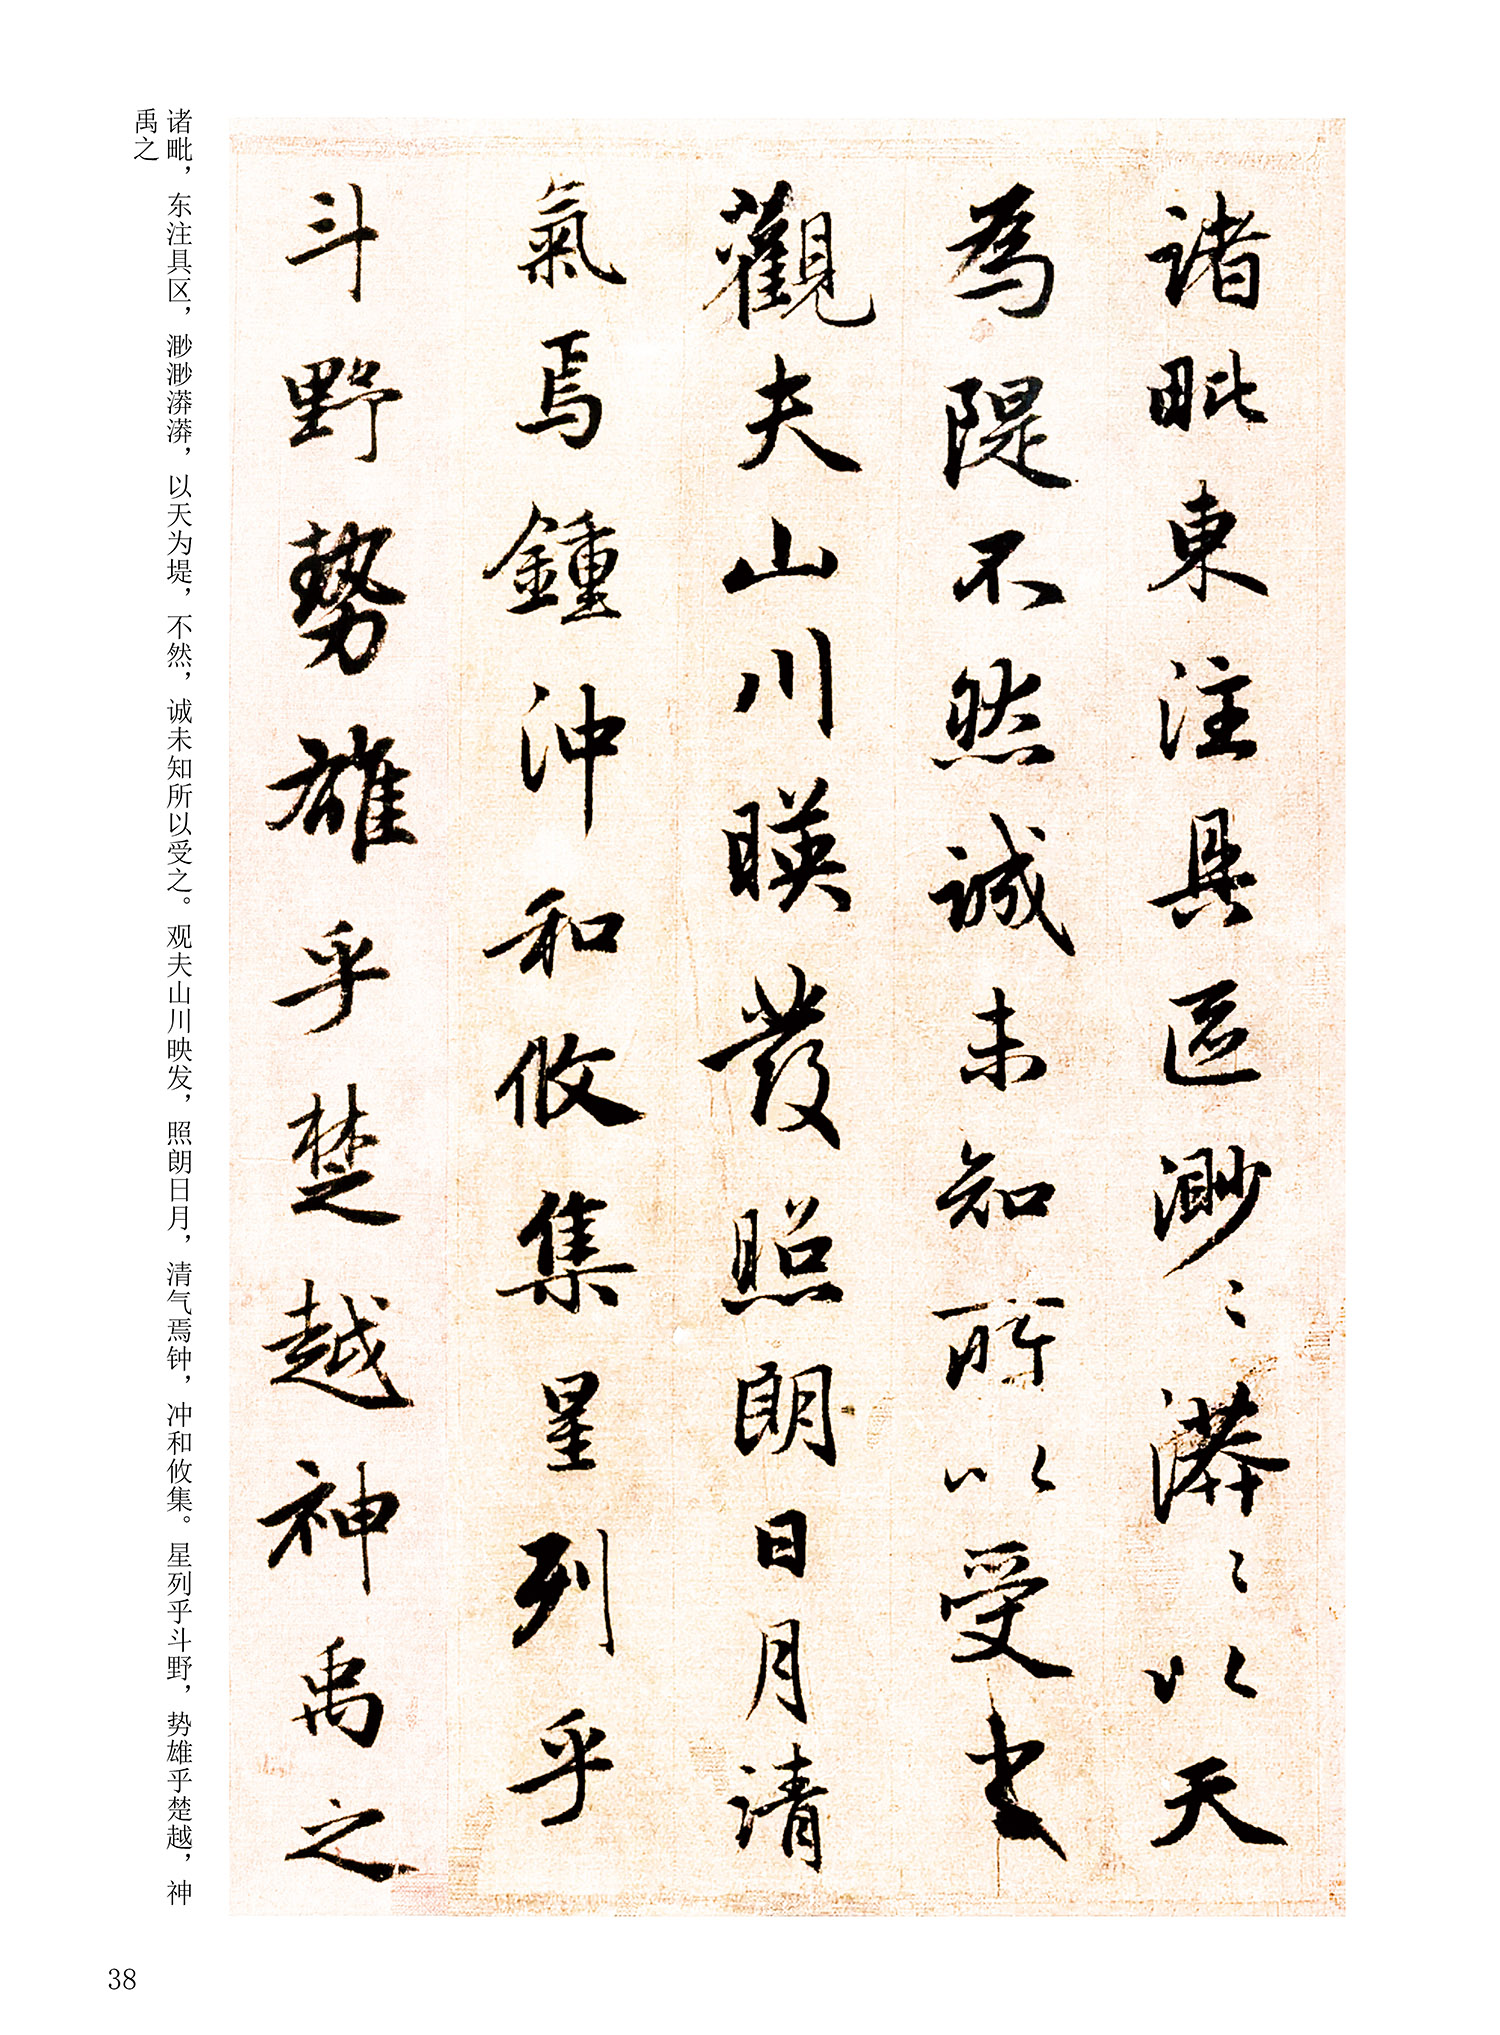 諸毗東注具區渺〻漭〻以天
為隄不然誠未知所以受之
觀夫山川暎發照朗日月清
氣焉鍾沖和攸集星列乎
斗野勢雄乎楚越神禹之
诸毗，东注具区，渺渺漭漭，以天为堤，不然，诚未知所以受之。观夫山川映发，照朗日月，清气焉钟，冲和攸集。星列乎斗野，势雄乎楚越，神
禹之
38